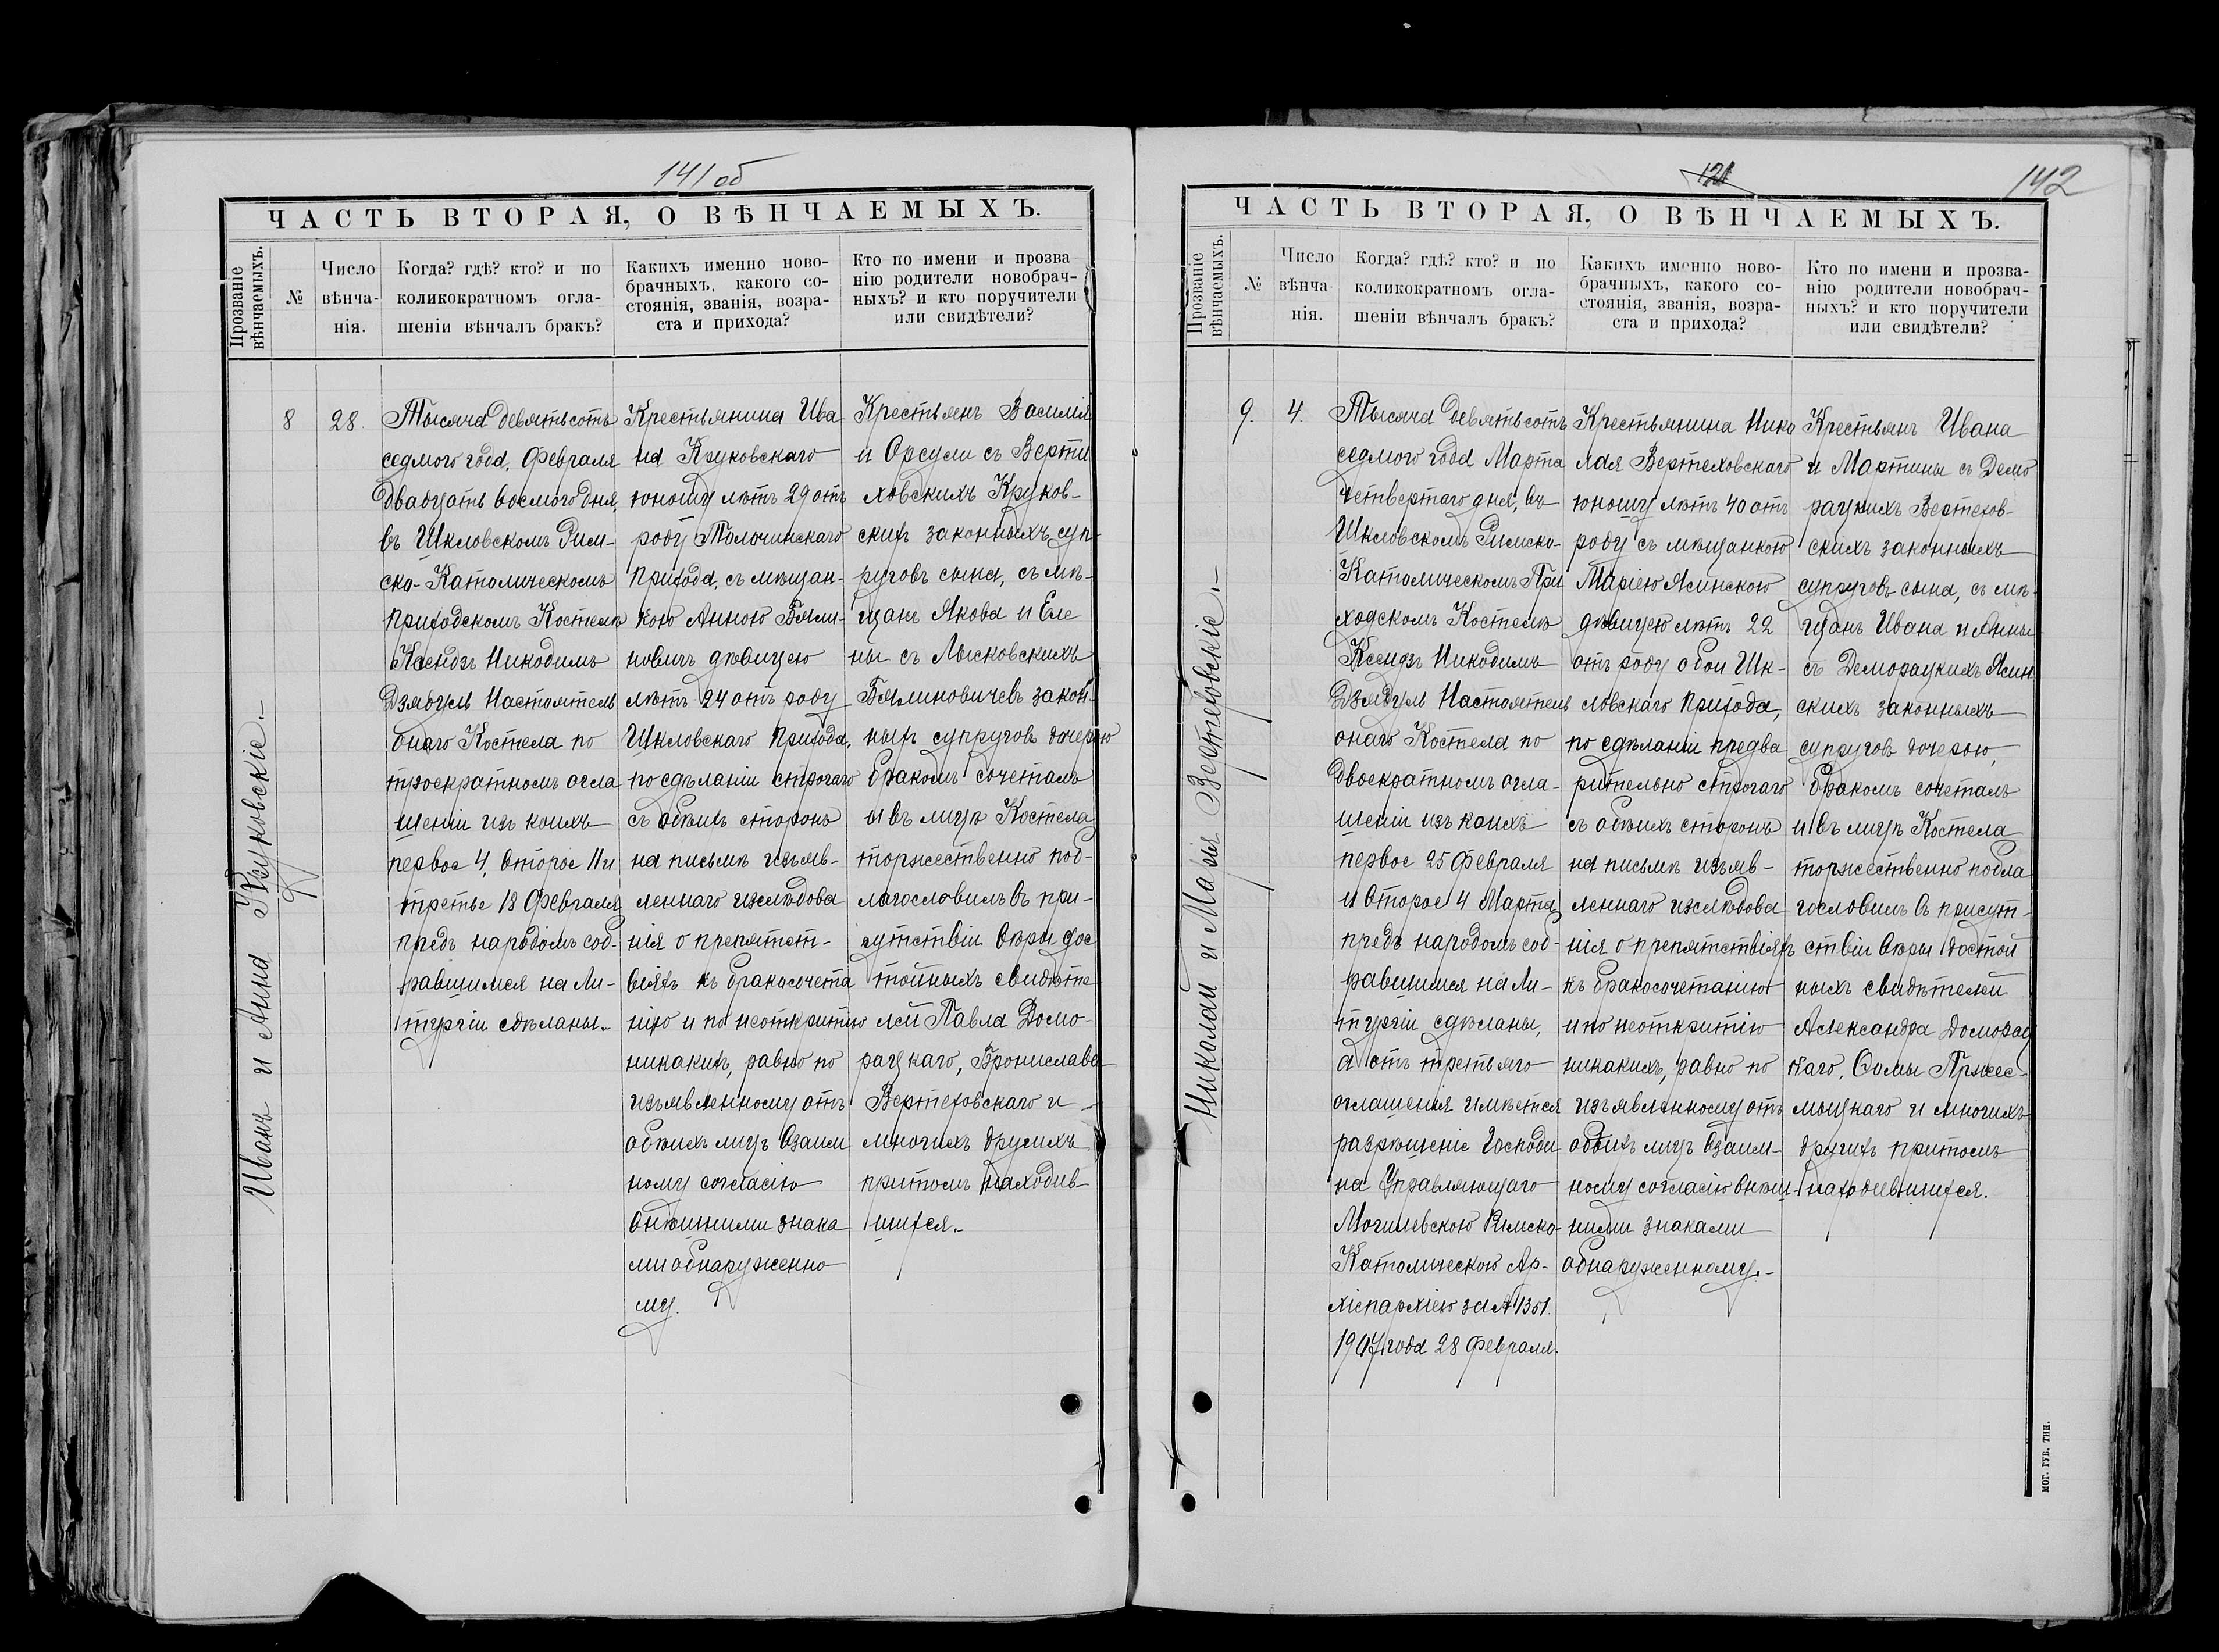 141 об
ЧАСТЬ ВТОРАЯ, О ВѢНЧАЕМЫХЪ.
Прозваніе
вѣнчаемыхъ.
№
Число
вѣнча-
нія.
Когда? гдѣ? кто? и по
коликократномъ огла-
шеніи вѣнчалъ бракъ?
Какихъ именно ново-
брачныхъ, какого со-
стоянія, званія, возра-
ста и прихода?
Кто по имени и прозва
нію родители новобрач-
ныхъ? и кто поручители
или свидѣтели?
Иванъ и Анна Круковскіе.-
8
28.
Тысяча девятьсотъ
седмого года, Февраля
двадцать восмого дня,
въ Шкловскомъ Рим-
ско-Католическомъ
приходскомъ Костелѣ
Ксендзъ Никодимъ
Дзядуль Настоятель
онаго Костела по
троекратномъ огла
шеніи изъ коихъ
первое 4, второе 11 и
третье 18 Февраля
предъ народомъ соб-
равшимся на Ли-
тургіи сдѣланы.-
Крестьянина Ива
на Круковскаго
юношу лѣтъ 29 отъ
роду Толочинскаго
прихода, съ мѣщан-
кою Анною Бяли-
новичъ дѣвицею
лѣтъ 24 отъ роду
Шкловскаго прихода,
по сдѣланіи строгаго
съ обѣихъ сторонъ
на письмѣ изъяв-
леннаго изслѣдова
нія о препятст-
віяхъ къ бракосочета
нію и по неоткрытію
никакихъ, равно по
изъявленному отъ
обѣихъ лицъ взаим
ному согласію
внѣшними знака
ми обнаруженно
му.
Крестьянъ Василія
и Орсули съ Верти
ховскихъ Круков-
скихъ законныхъ суп-
руговъ сына, съ мѣ-
щанъ Якова и Еле
ны съ Лысковскихъ
Бялиновичевъ закон-
ныхъ супруговъ дочерью
бракомъ сочеталъ
и въ лицѣ Костела
торжественно поб-
лагословилъ въ при-
сутствіи вѣры дос
тойныхъ свидѣте
лей Павла Домо-
рацкаго, Бронислава
Вертеховскаго и
многихъ другихъ
притомъ находив-
шихся.-
121
142
ЧАСТЬ ВТОРАЯ, О ВѢНЧАЕМЫХЪ.
Прозваніе
вѣнчаемыхъ.
№
Число
вѣнча
нія.
Когда? гдѣ? кто? и по
коликократномъ огла-
шеніи вѣнчалъ бракъ?
Какихъ именно ново-
брачныхъ, какого со-
стоянія, званія, возра-
ста и прихода?
Кто по имени и прозва-
нію родители новобрач-
ныхъ? и кто поручители
или свидѣтели?
Николай и Марія Вертеховскіе.-
9.
4.
Тысяча девятьсотъ
седмого года Марта
четвертаго дня, въ
Шкловскомъ Римско-
Католическомъ При
ходскомъ Костелѣ
Ксендзъ Никодимъ
Дзядуль Настоятель
онаго Костела по
двоекратномъ огла-
шеніи изъ коихъ
первое 25 Февраля
и второе 4 Марта
предъ народомъ соб-
равшимся на Ли-
тургіи сдѣланы,
а отъ третьяго
оглашенія имѣется
разрѣшеніе Господи
на Управляющаго
Могилевскою Римско-
Католическою Ар-
хіепархіею за № 1301.
1907 года 28 Февраля.
Крестьянина Нико
лая Вертеховскаго
юношу лѣтъ 40 отъ
роду съ мѣщанкою
Маріею Ясинскою
дѣвицею лѣтъ 22
отъ роду обои Шк-
ловскаго прихода,
по сдѣланіи предва
рительно строгаго
съ обѣихъ сторонъ
на письмѣ изъяв-
леннаго изслѣдова
нія о препятствіяхъ
къ бракосочетанію
и по неоткрытію
никакихъ, равно по
изъявленному отъ
обоихъ лицъ взаим-
ному согласію внѣш-
ними знаками
обнаруженному.-
Крестьянъ Ивана
и Мартины съ Демо
рацкихъ Вертехов-
скихъ законныхъ
супруговъ сына, съ мѣ-
щанъ Ивана и Анны
съ Деморацкихъ Ясин
скихъ законныхъ
супруговъ дочерью,
бракомъ сочеталъ
и въ лицѣ Костела
торжественно побла
гословилъ въ присут-
ствіи вѣры достой
ныхъ свидѣтелей
Александра Доморац
каго, Ѳомы Пржес-
моцкаго и многихъ
другихъ притомъ
находившихся.
МОГ. ГУБ. ТИП.